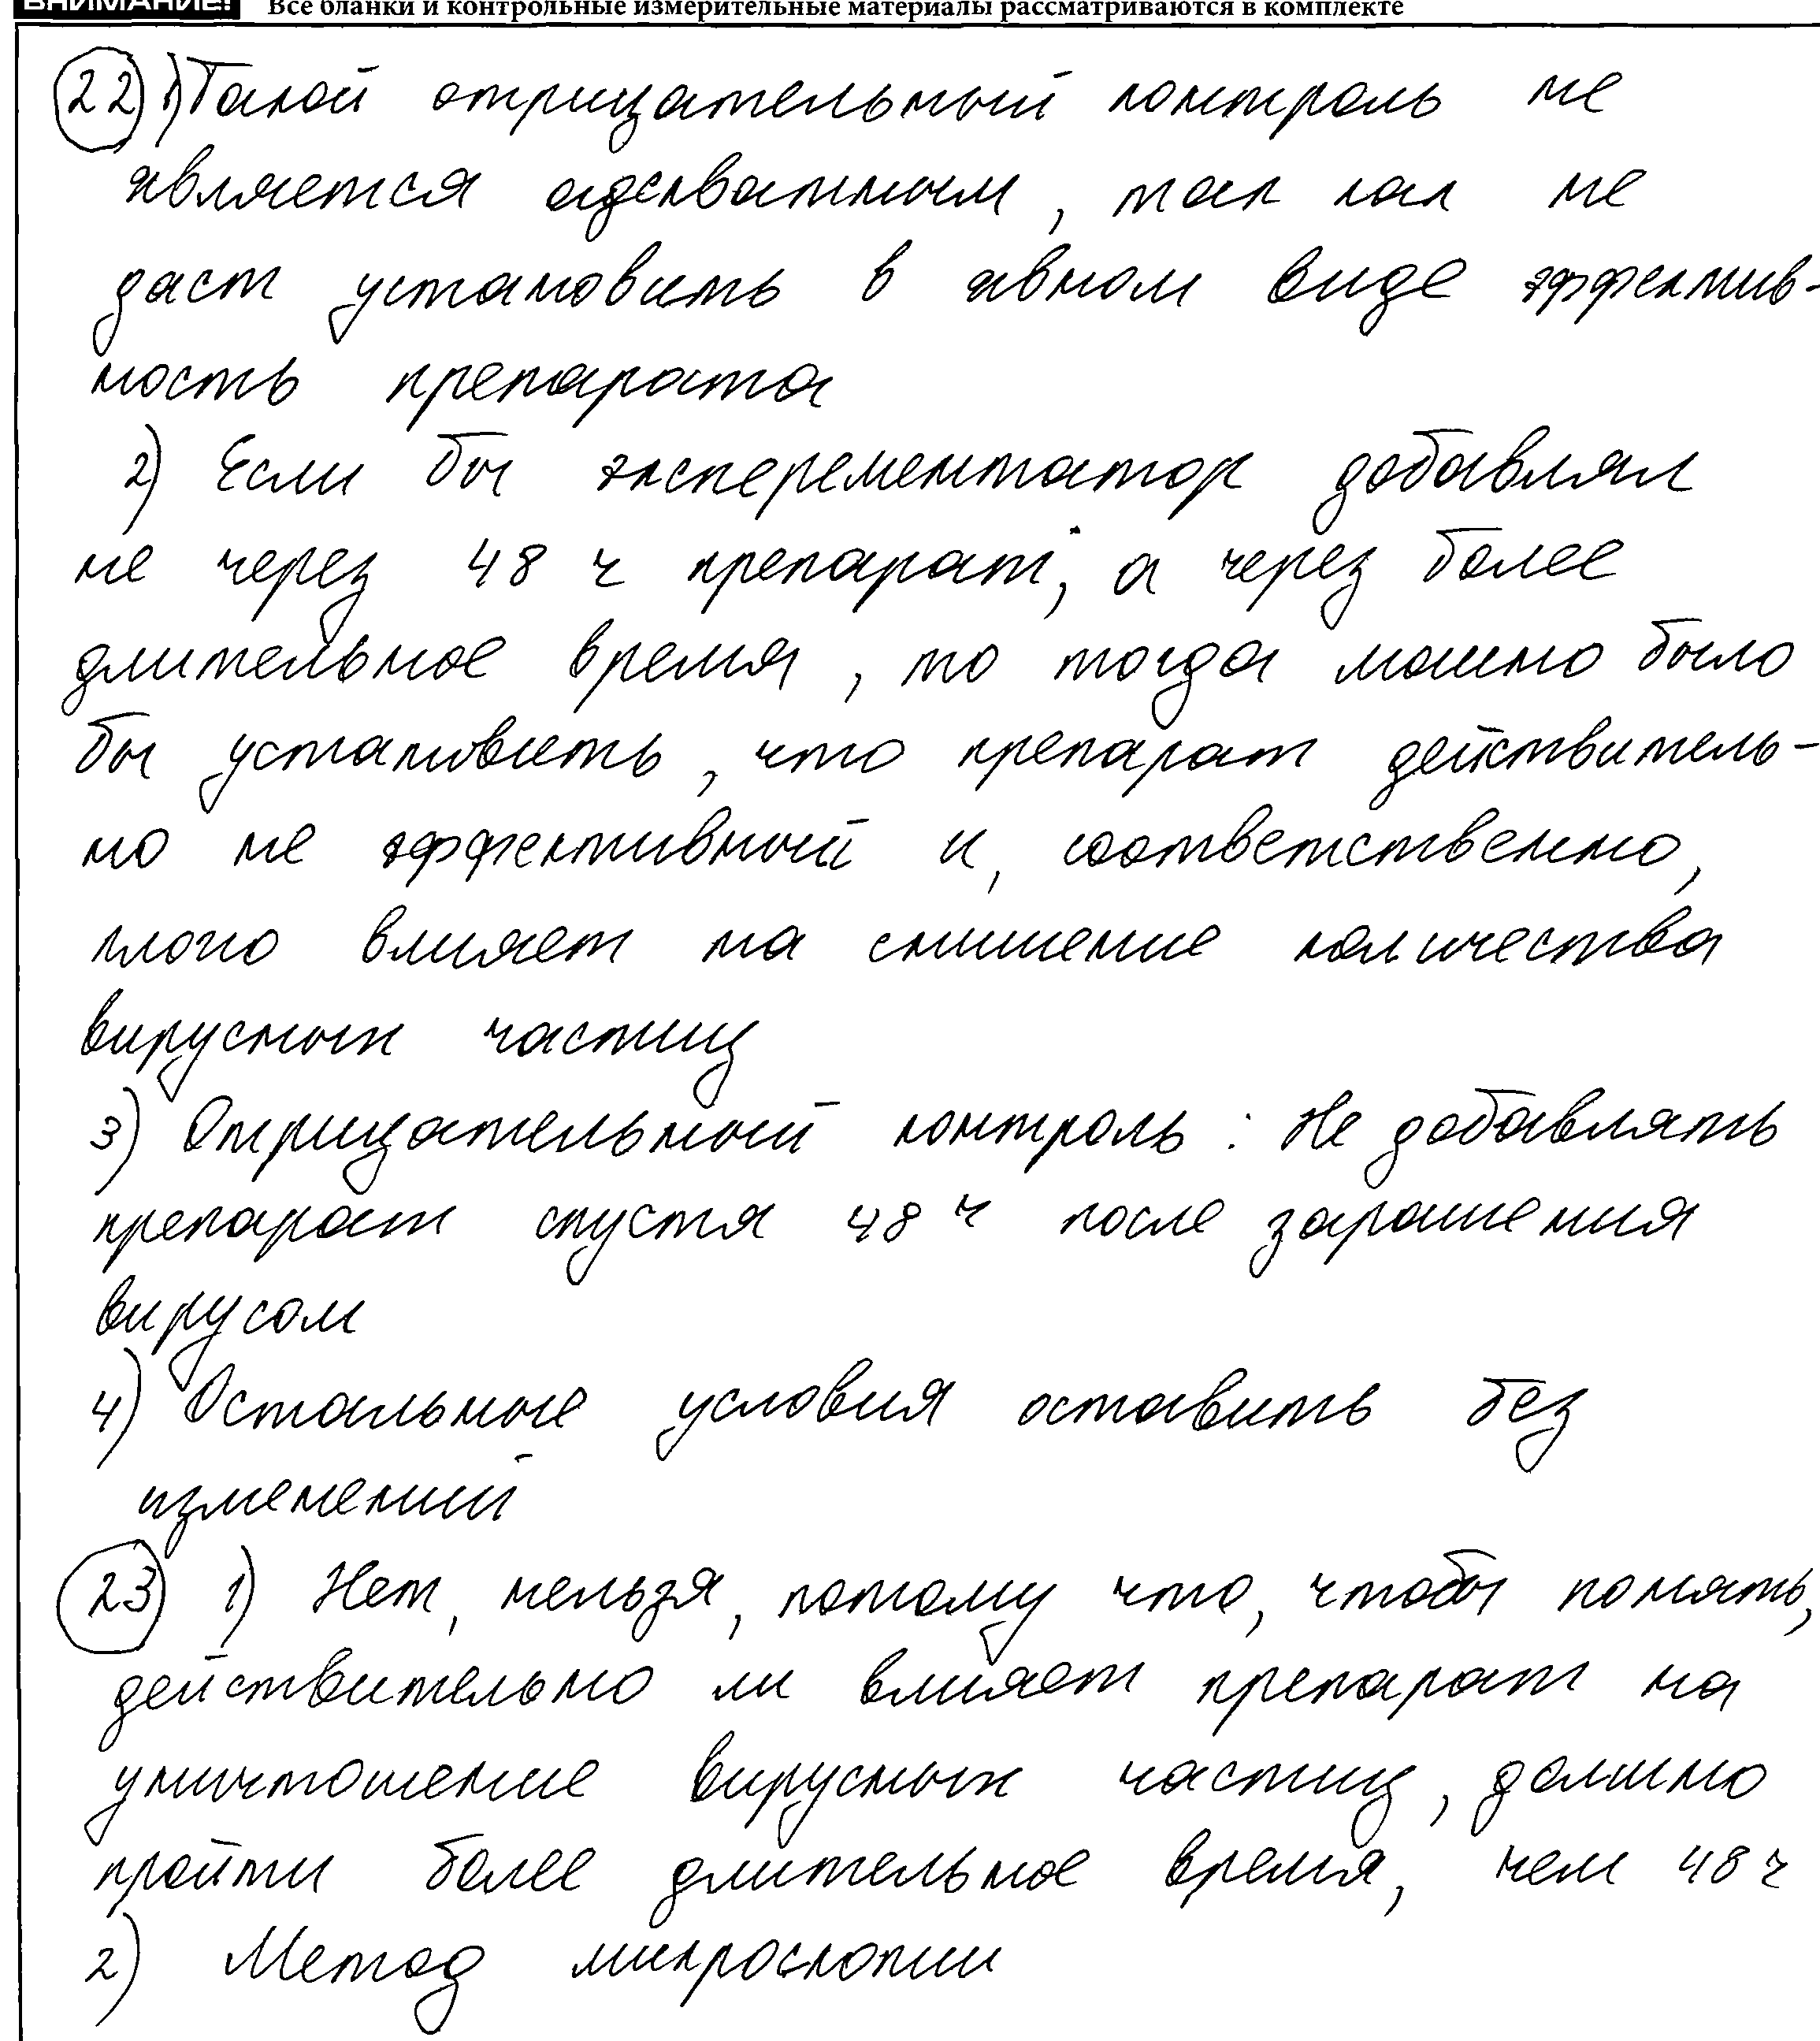 ВНИМАНИЕ! Все бланки и контрольные измерительные материалы рассматриваются в комплекте
22 1) Такой отрицательный контроль не
является адекватным, так как не
даст установить в явном виде эффектив-
ность препарата
2) Если бы эксперементатор добавлял
не через 48 ч препарат, а через более
длительное время, то тогда можно было
бы установить, что препарат действитель-
но не эффективный и, соответственно,
плохо влияет на снижение количества
вирусных частиц
3) Отрицательный контроль: Не добавлять
препарат спустя 48 ч после заражения
вирусом
4) Остальные условия оставить без
изменений
23 1) Нет, нельзя, потому что, чтобы понять,
действительно ли влияет препарат на
уничтожение вирусных частиц, должно
пройти более длительное время, чем 48 ч
2) Метод микроскопии